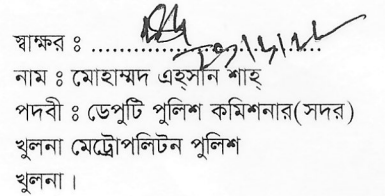 স্বাক্ষর ঃ ................................
নাম ঃ মোহাম্মদ এহ্সান শাহ্
পদবী ঃ ডেপুটি পুলিশ কমিশনার(সদর)
খুলনা মেট্রোপলিটন পুলিশ
খুলনা ।